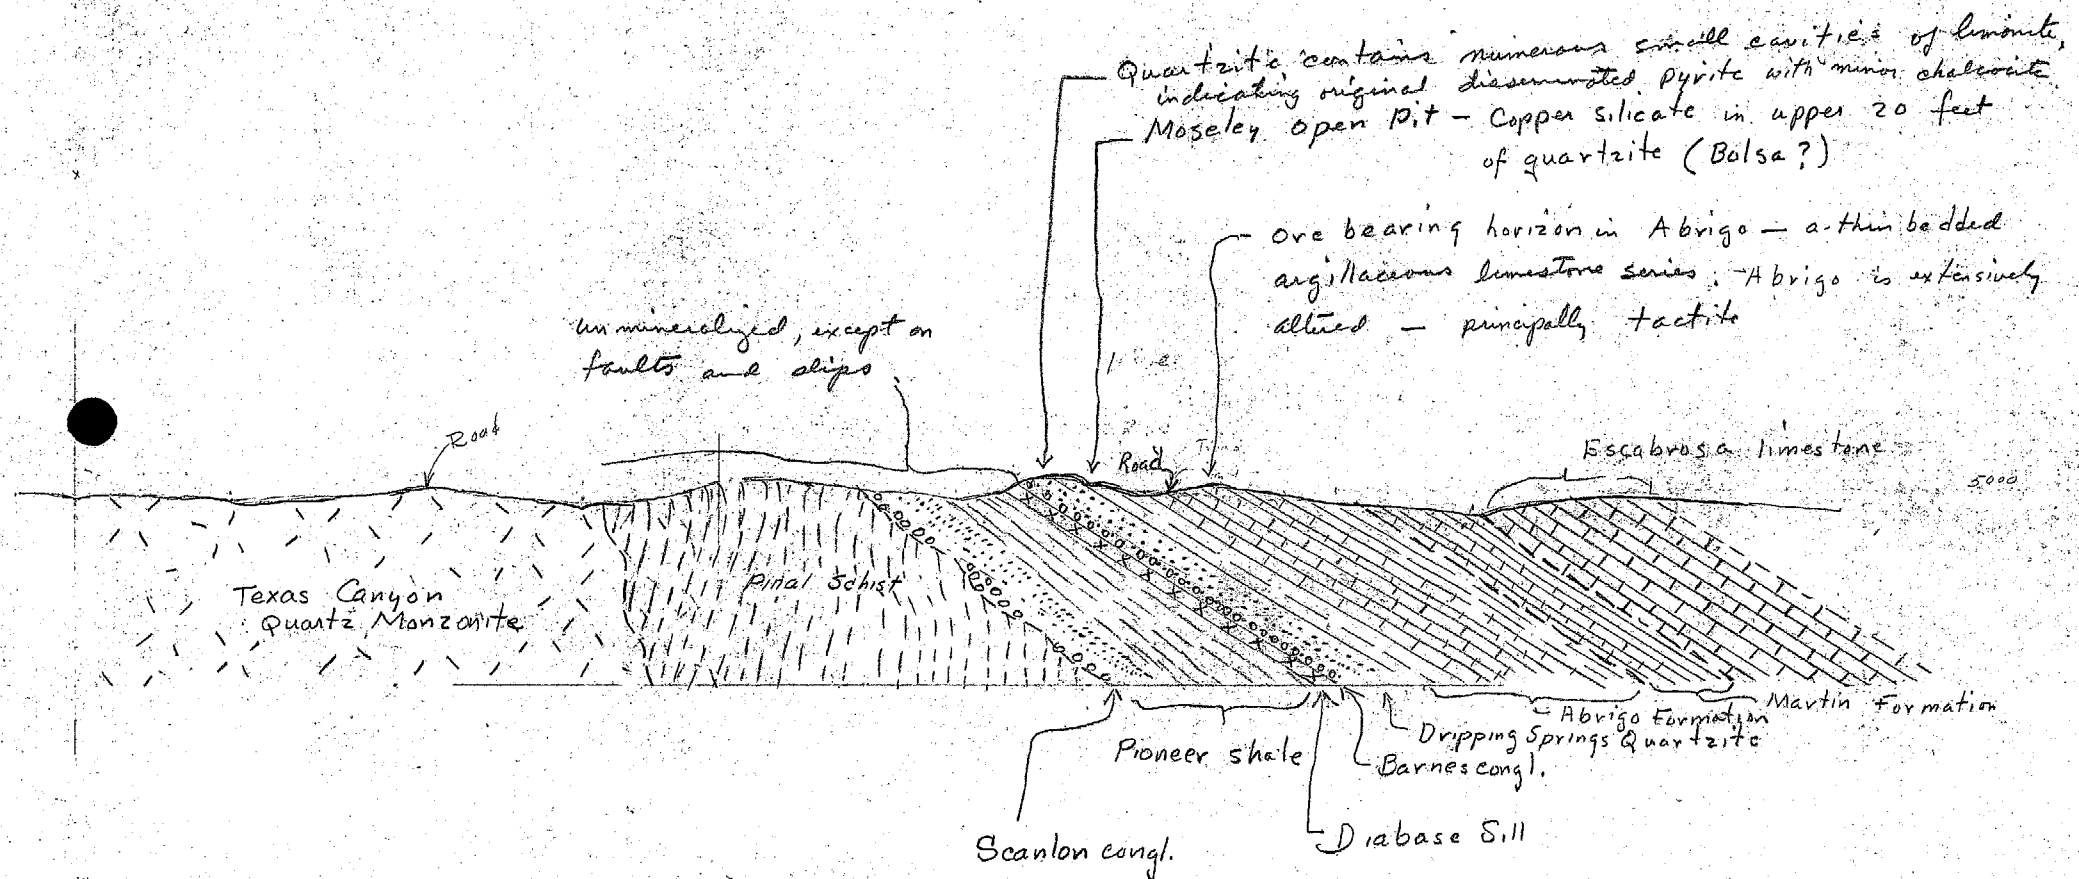 Quartzite contains numerous small cavities of limonite,
indicating original disseminated pyrite with minor chalcocite
Moseley Open Pit — Copper silicate in upper 20 feet
of quartzite (Bolsa?)
Ore bearing horizon in Abrigo — a thin bedded
argillaceous limestone series. Abrigo is extensively
altered — principally tactite
unmineralized, except on
faults and slips
Road
Road
Escabrosa limestone
5000
Pinal Schist
Texas Canyon
Quartz Monzonite
Martin Formation
Abrigo Formation
Dripping Springs Quartzite
Pioneer shale
Barnes congl.
Diabase Sill
Scanlon congl.